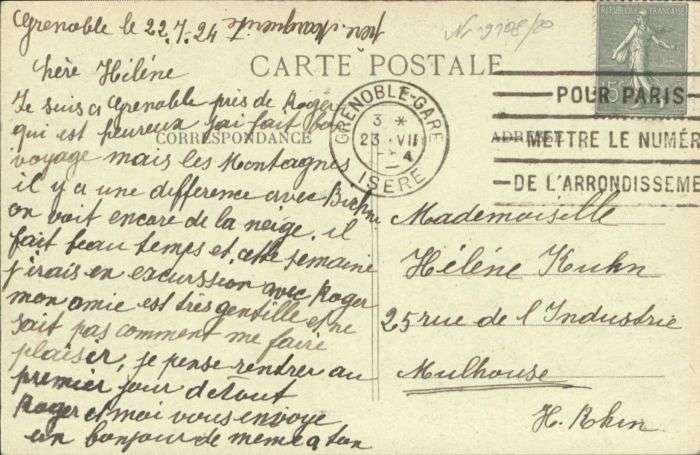 Grenoble le 22.7.24
père. Marguerite
N 9108/20
Chère Hélène
CARTE POSTALE
CORRESPONDANCE
ADRESSE
Je suis a Grenoble près de Roger
qui est heureux j'ai fait bon
voyage mais les Montagnes
il y a une difference avec
on voit encore de la neige. il
fait beau temps et cette semaine
j'irais en excurssion avec Roger
mon amie est très gentille et ne
sait pas comment me faire
plaisir, je pense rentrer au
premier jour d'Aout
Roger et moi vous envoye
un bonjour de meme a ton
RÉPUBLIQUE FRANÇAISE
15
GRENOBLE-GARE
3 *
23 VII
4
ISÈRE
POUR PARIS
METTRE LE NUMÉR
DE L'ARRONDISSEME
Mademoiselle
Hélène Kuhn
25 rue de l'Industrie
Mulhouse
H. Rhin